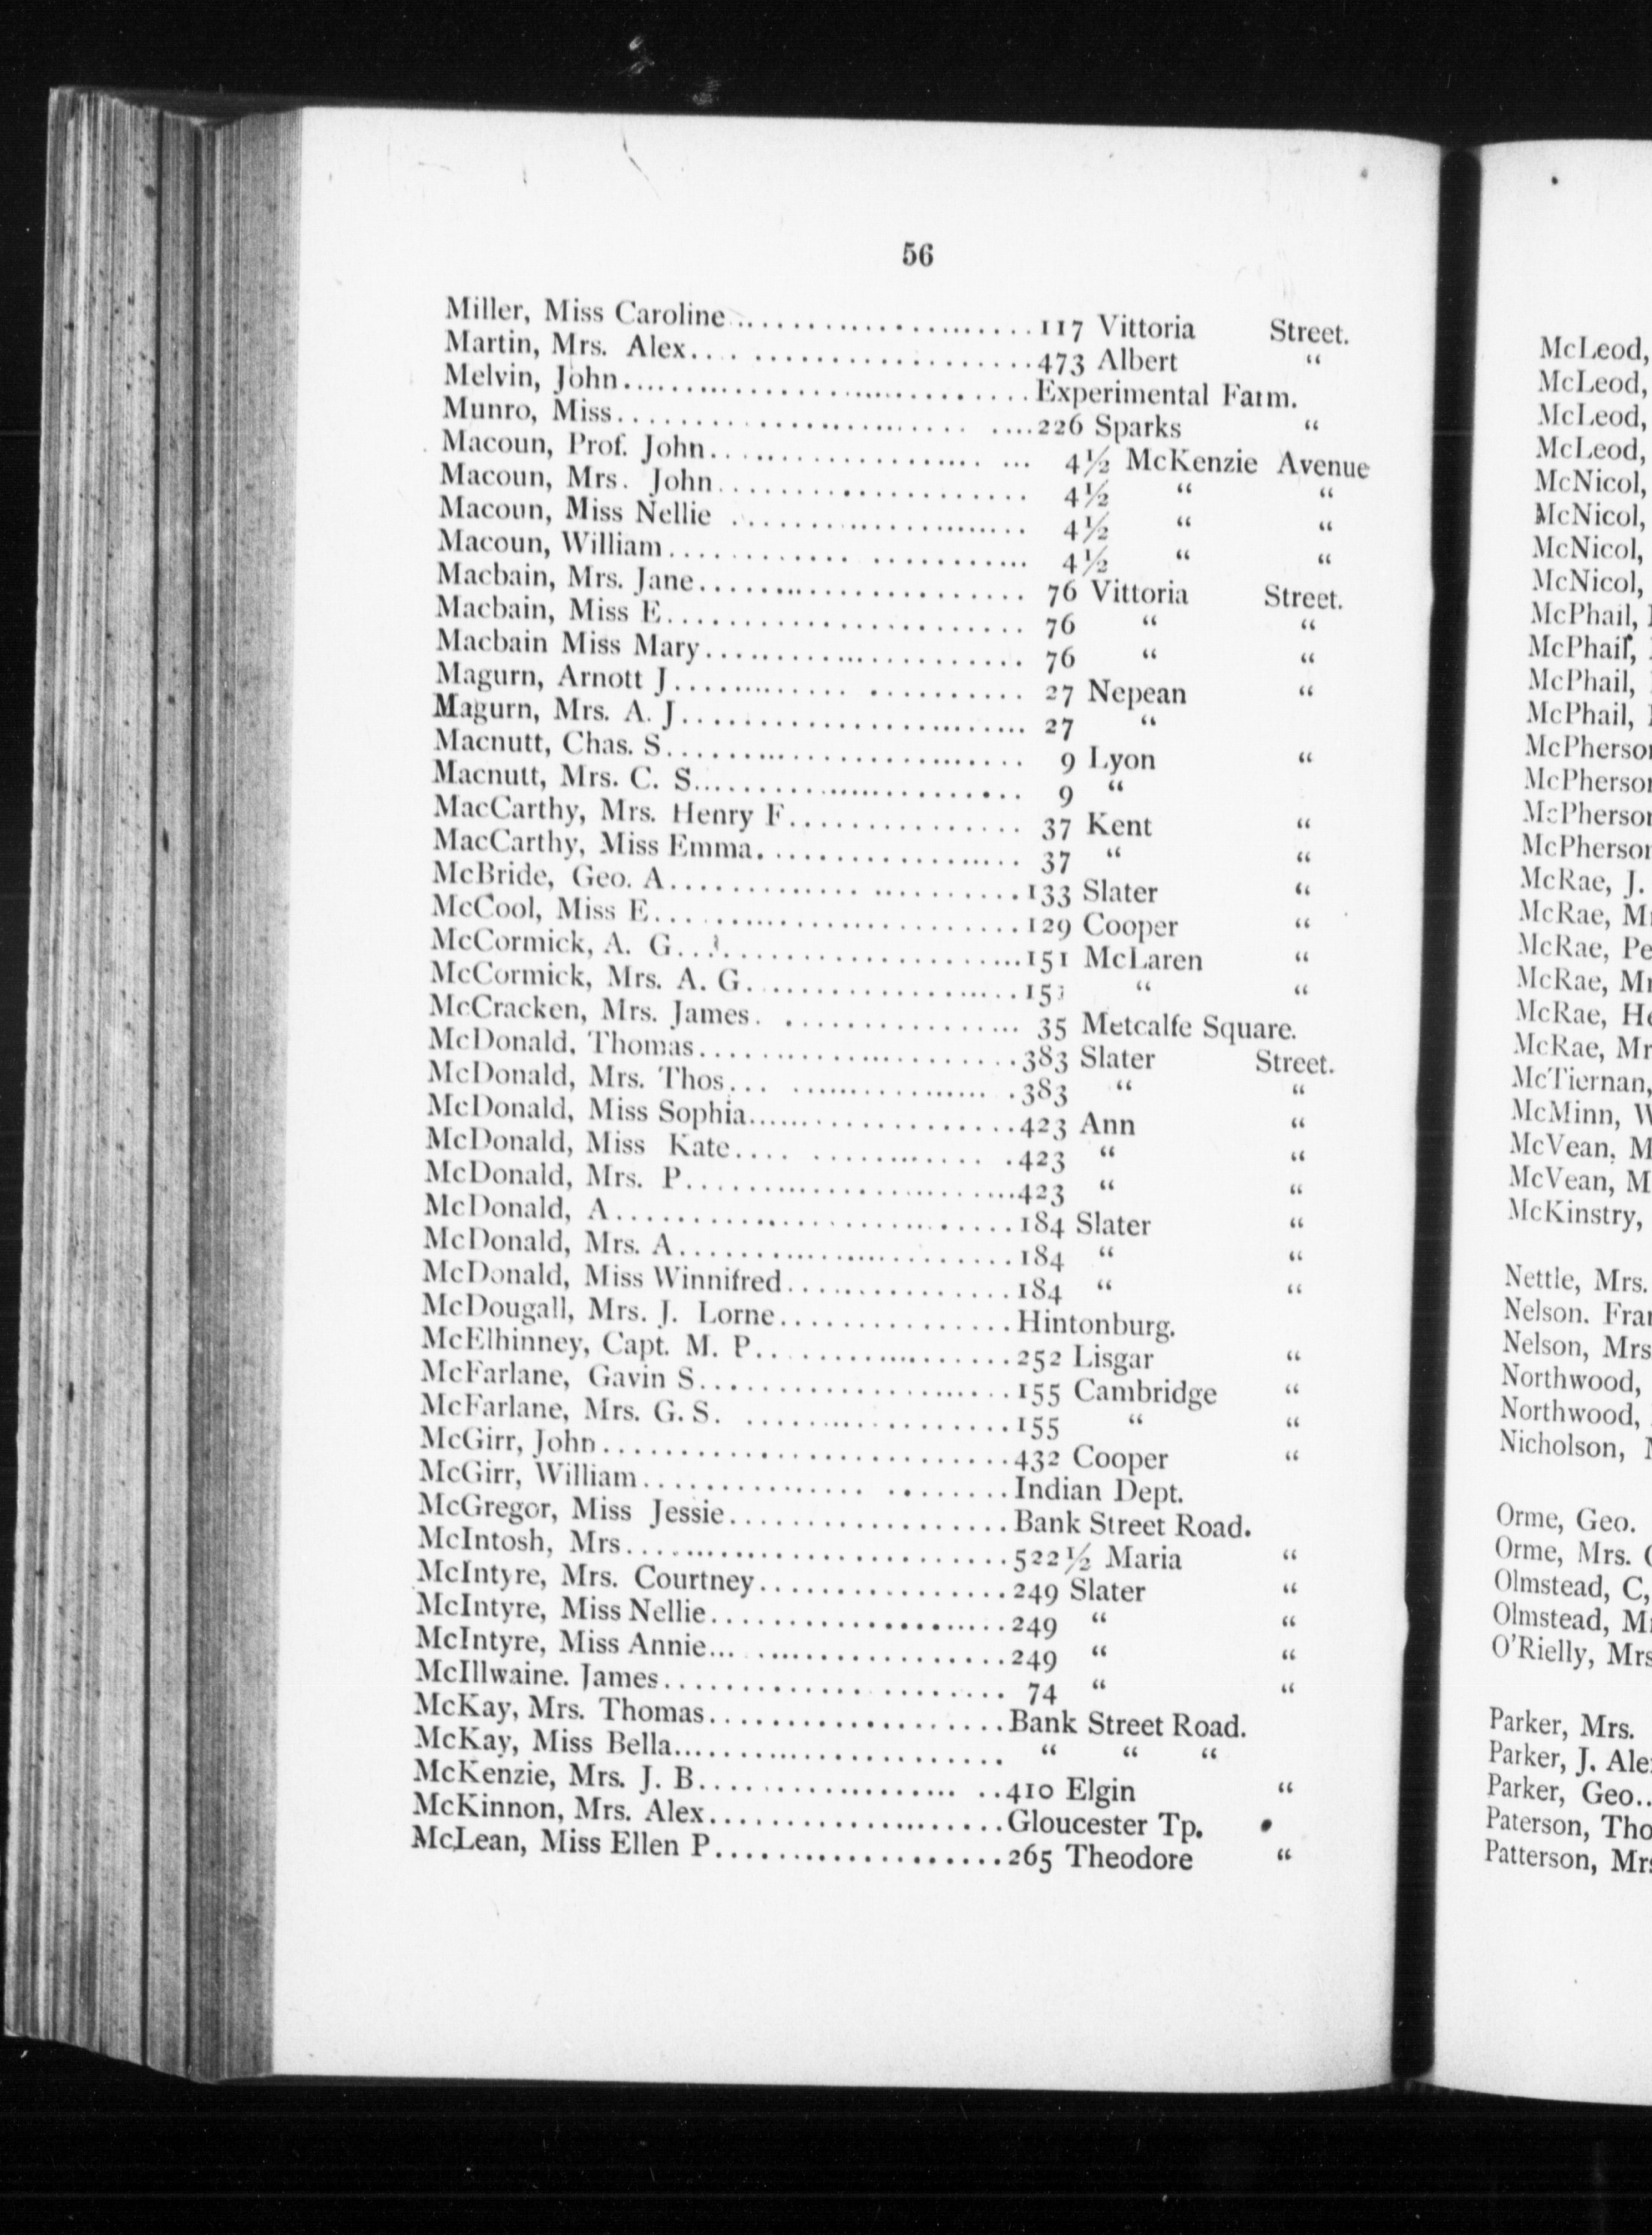 56
Miller, Miss Caroline........................117 Vittoria Street.
Martin, Mrs. Alex.... ....................473 Albert “
Melvin, John..............................Experimental Farm.
Munro, Miss...................... ....226 Sparks “
Macoun, Prof. John................... ... 4½ McKenzie Avenue
Macoun, Mrs. John...................... 4½ “ “
Macoun, Miss Nellie .................... 4½ “ “
Macoun, William............ ........... 4½ “ “
Macbain, Mrs. Jane....................... 76 Vittoria Street.
Macbain, Miss E......................... 76 “ “
Macbain Miss Mary...................... 76 “ “
Magurn, Arnott J............. .......... 27 Nepean “
Magurn, Mrs. A. J........................ 27 “
Macnutt, Chas. S......................... 9 Lyon “
Macnutt, Mrs. C. S....................... 9 “
MacCarthy, Mrs. Henry F................ 37 Kent “
MacCarthy, Miss Emma.................. 37 “ “
McBride, Geo. A............. ..........133 Slater “
McCool, Miss E.........................129 Cooper “
McCormick, A. G........................151 McLaren “
McCormick, Mrs. A. G...................151 “ “
McCracken, Mrs. James. ................ 35 Metcalfe Square.
McDonald, Thomas......................383 Slater Street.
McDonald, Mrs. Thos... .............. .383 “ “
McDonald, Miss Sophia...................423 Ann “
McDonald, Miss Kate.... ............ .423 “ “
McDonald, Mrs. P........................423 “ “
McDonald, A............................184 Slater “
McDonald, Mrs. A.......................184 “ “
McDonald, Miss Winnifred................184 “ “
McDougall, Mrs. J. Lorne................Hintonburg.
McElhinney, Capt. M. P..................252 Lisgar “
McFarlane, Gavin S......................155 Cambridge “
McFarlane, Mrs. G. S. ...................155 “ “
McGirr, John............................432 Cooper “
McGirr, William................ ........Indian Dept.
McGregor, Miss Jessie....................Bank Street Road.
McIntosh, Mrs...........................522½ Maria “
McIntyre, Mrs. Courtney.................249 Slater “
McIntyre, Miss Nellie.....................249 “ “
McIntyre, Miss Annie... ..................249 “ “
McIllwaine. James........................ 74 “ “
McKay, Mrs. Thomas.....................Bank Street Road.
McKay, Miss Bella....................... “ “ “
McKenzie, Mrs. J. B.................. ..410 Elgin “
McKinnon, Mrs. Alex.....................Gloucester Tp.
McLean, Miss Ellen P.....................265 Theodore “
McLeod,
McLeod,
McLeod,
McLeod,
McNicol,
McNicol,
McNicol,
McNicol,
McPhail,
McPhail,
McPhail,
McPhail,
McRae, J.
McRae,
McRae,
McRae,
McRae,
McRae,
McTiernan,
McMinn,
McVean,
McVean,
McKinstry,
Nettle, Mrs.
Nelson.
Nelson, Mrs
Northwood,
Northwood,
Nicholson,
Orme, Geo.
Orme, Mrs.
Olmstead, C,
Olmstead,
O'Rielly, Mrs
Parker, Mrs.
Parker, J.
Parker, Geo..
Paterson,
Patterson,